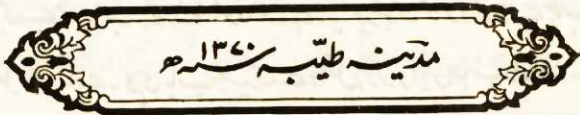 مدینہ طیّبہ ۱۳۷۰ھ